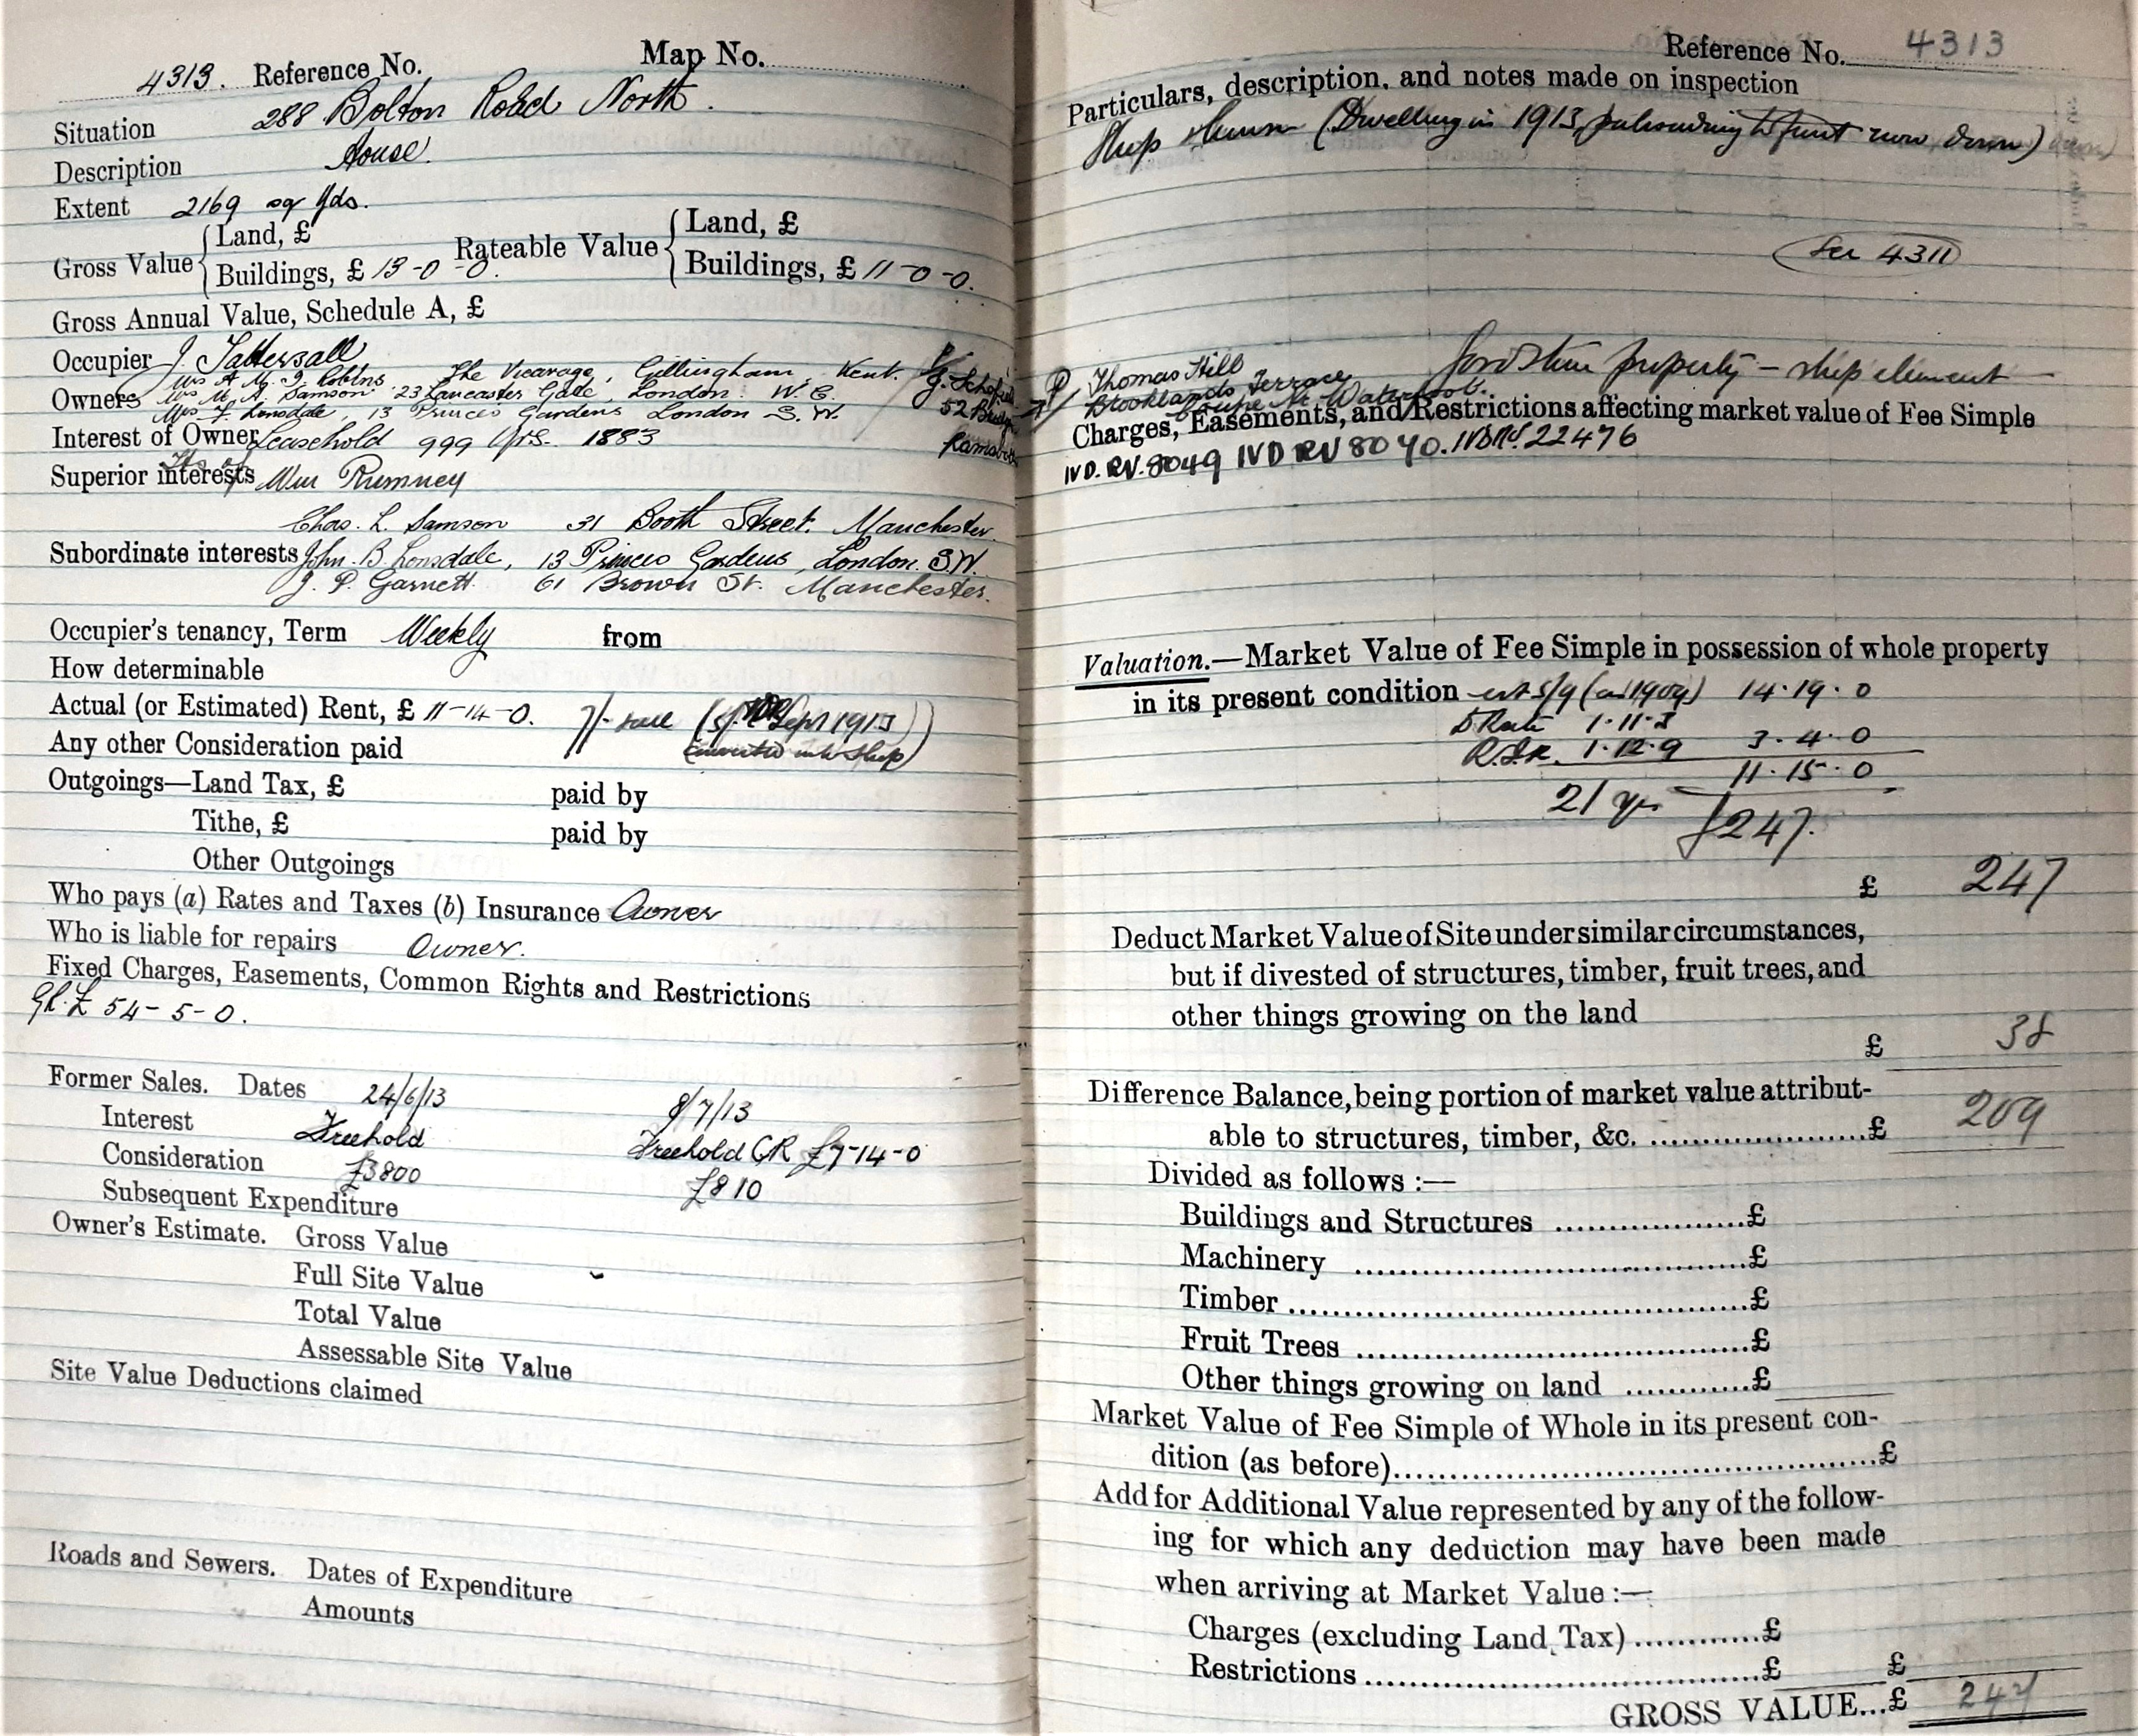 4313. Reference No. Map No.
Situation 288 Bolton Road North.
Description House.
Extent 2169 sq Yds.
Gross Value { Land, £
Buildings, £ 13-0-0. Rateable Value { Land, £
Buildings, £ 11-0-0.
Gross Annual Value, Schedule A, £
Occupier J. Tattersall
Mrs A. M. J. Robins The Vicarage, Gillingham, Kent.
Owners Mrs M. A. Samson 23 Lancaster Gate, London. W.C.
Mrs F. Lonsdale, 13 Princes Gardens London S.W. 52
Interest of Owner Leasehold 999 Yrs. 1883
Superior interests Wm Rumney
Chas. L. Samson 31 Booth Street. Manchester.
Subordinate interests John. B. Lonsdale, 13 Princes Gardens, London. S.W.
J. P. Garnett 61 Brown St. Manchester.
Occupier's tenancy, Term Weekly from
How determinable
Actual (or Estimated) Rent, £ 11-14-0. 7/- Sept 1913)
Any other Consideration paid (converted into Shop)
Outgoings—Land Tax, £ paid by
Tithe, £ paid by
Other Outgoings
Who pays (a) Rates and Taxes (b) Insurance Owner
Who is liable for repairs Owner.
Fixed Charges, Easements, Common Rights and Restrictions
GR. £ 54-5-0.
Former Sales. Dates 24/6/13 8/7/13
Interest Freehold Freehold CR £7-14-0
Consideration £3800 £810
Subsequent Expenditure
Owner's Estimate. Gross Value
Full Site Value
Total Value
Assessable Site Value
Site Value Deductions claimed
Roads and Sewers. Dates of Expenditure
Amounts
Reference No. 4313
Particulars, description, and notes made on inspection
Shop (Dwelling in 1913, front now down)
See 4311
Thomas Hill property - shop element
Brooklands Terrace
Charges, Easements, and Restrictions affecting market value of Fee Simple
IVD. RV. 8049 IVD RV 8040. 22476
Valuation.—Market Value of Fee Simple in possession of whole property
in its present condition 5/9 (in 1909) 14.19.0
D Rate 1.11.3
1.12.9 3.4.0
11.15.0
21 yrs £247.
£ 247
Deduct Market Value of Site under similar circumstances,
but if divested of structures, timber, fruit trees, and
other things growing on the land
£ 38
Difference Balance, being portion of market value attribut-
able to structures, timber, &c. ......................£ 209
Divided as follows :—
Buildings and Structures ....................£
Machinery ..........................................£
Timber ................................................£
Fruit Trees .........................................£
Other things growing on land ............£
Market Value of Fee Simple of Whole in its present con-
dition (as before)...................................................£
Add for Additional Value represented by any of the follow-
ing for which any deduction may have been made
when arriving at Market Value :—
Charges (excluding Land Tax) ............£
Restrictions .........................................£ £
GROSS VALUE...£ 247